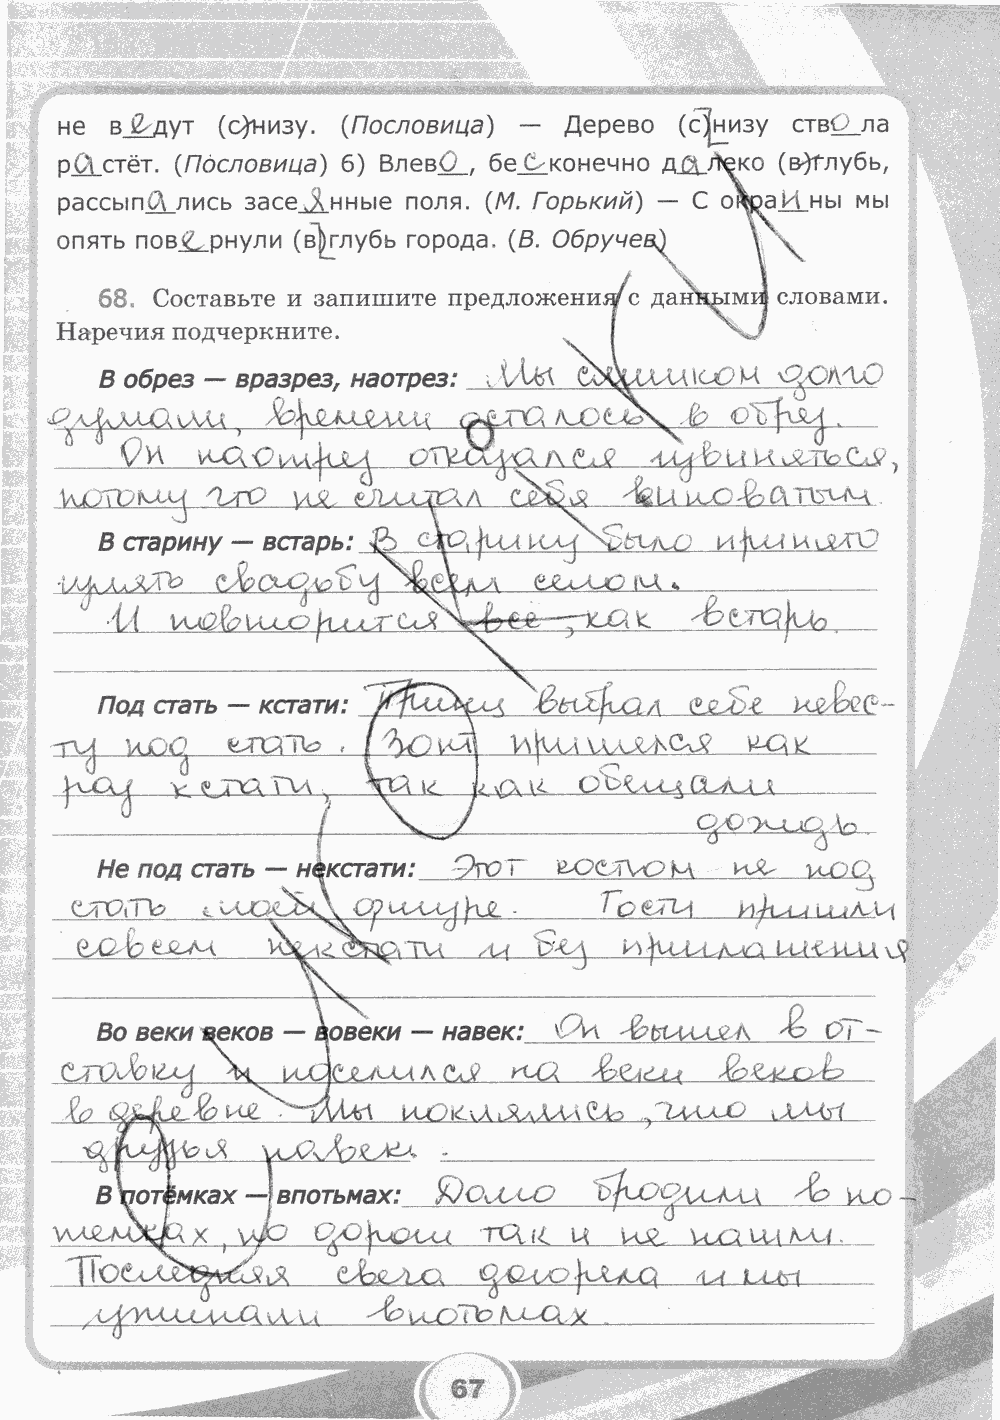 не ведут (с)низу. (Пословица) — Дерево (с)низу ствола
растёт. (Пословица) 6) Влево, бесконечно далеко (в)глубь,
рассыпались засеянные поля. (М. Горький) — С окраины мы
опять повернули (в)глубь города. (В. Обручев)
68. Составьте и запишите предложения с данными словами.
Наречия подчеркните.
В обрез — вразрез, наотрез: Мы слишком долго
думали, времени осталось в обрез.
Он наотрез отказался извиняться,
потому что не считал себя виноватым
В старину — встарь: В старину было принято
гулять свадьбу всем селом.
И повторится все, как встарь.
Под стать — кстати: Принц выбрал себе невес-
ту под стать. Зонт пришелся как
раз кстати, так как обещали
дождь.
Не под стать — некстати: Этот костюм не под
стать моей фигуре. Гости пришли
совсем некстати и без приглашения
Во веки веков — вовеки — навек: Он вышел в от-
ставку и поселился на веки веков
в деревне. Мы поклялись, что мы
друзья навек.
В потёмках — впотьмах: Долго бродили в по-
темках, но дороги так и не нашли.
Последняя свеча догорела и мы
ужинали впотьмах.
67